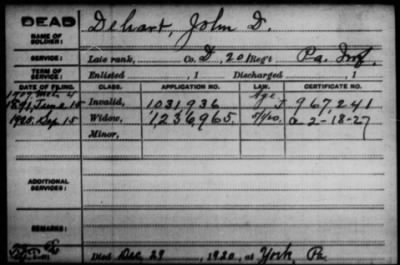 DEAD
NAME OF SOLDIER: Dehart, John D.
SERVICE: Late rank, Co. D, 20 Regt Pa. Inf.
TERM OF SERVICE: Enlisted , 1 Discharged , 1
DATE OF FILING. CLASS. APPLICATION NO. LAW. CERTIFICATE NO.
1907 Mch 4 Age
1891, June 15 Invalid, 1031,936 J 967,241
1920, Sep 15 Widow, 1,236,965. a 2-18-27
Minor,
ADDITIONAL SERVICES:
REMARKS:
Died Dec 29, 1920, at York, Pa.